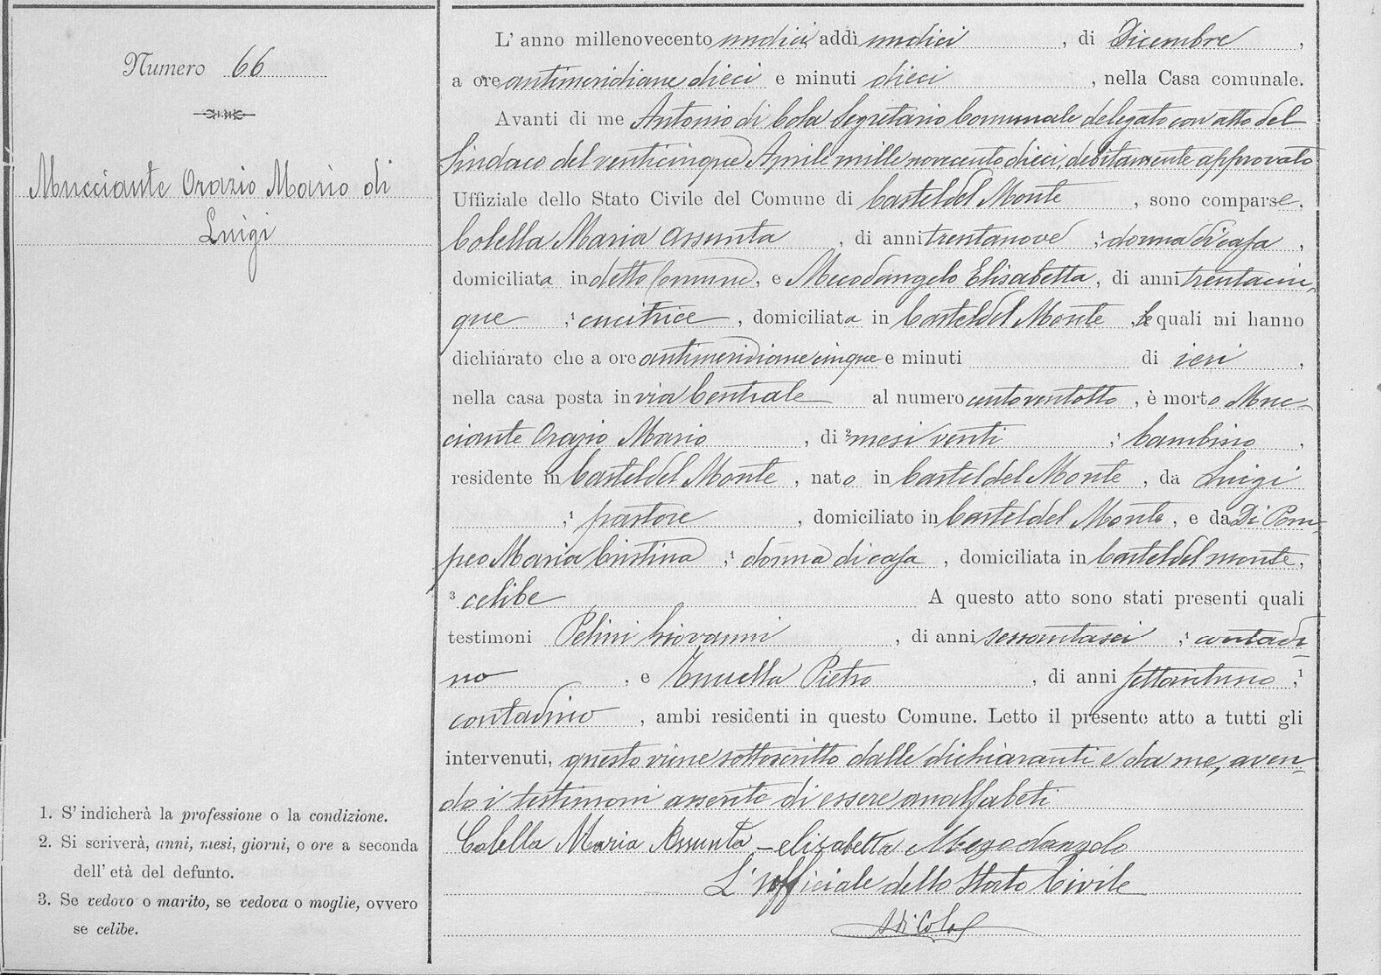 Numero 66
Mucciante Orazio Mario di
Luigi
1. S' indicherà la professione o la condizione.
2. Si scriverà, anni, mesi, giorni, o ore a seconda
dell' età del defunto.
3. Se vedovo o marito, se vedova o moglie, ovvero
se celibe.
L' anno millenovecento undici, addì undici, di Dicembre,
a ore antimeridiane dieci e minuti dieci, nella Casa comunale.
Avanti di me Antonio di Cola Segretario Comunale delegato con atto del
Sindaco del venticinque Aprile millenovecentodieci, debitamente approvato
Uffiziale dello Stato Civile del Comune di Castel del Monte, sono comparse,
Colella Maria Assunta, di anni trentanove, ¹ donna di casa,
domiciliata in detto Comune, e Mecodangelo Elisabetta, di anni trentacin-
que, ¹ cucitrice, domiciliata in Castel del Monte, le quali mi hanno
dichiarato che a ore antimeridiane cinque e minuti di ieri,
nella casa posta in via Centrale al numero centoventotto, è morto Muc-
ciante Orazio Mario, di ² mesi venti, ¹ bambino,
residente in Castel del Monte, nato in Castel del Monte, da Luigi
, ¹ pastore, domiciliato in Castel del Monte, e da Di Pom-
peo Maria Cristina, ¹ donna di casa, domiciliata in Castel del monte,
³ celibe A questo atto sono stati presenti quali
testimoni Pelini Giovanni, di anni sessantasei, ¹ contadi
no, e Pietro, di anni settantuno, ¹
contadino, ambi residenti in questo Comune. Letto il presente atto a tutti gli
intervenuti, questo viene sottoscritto dalle dichiaranti e da me, aven-
do i testimoni asserito di essere analfabeti
Colella Maria Assunta – elisabetta Megodangelo
L'Ufficiale dello Stato Civile
A di Cola